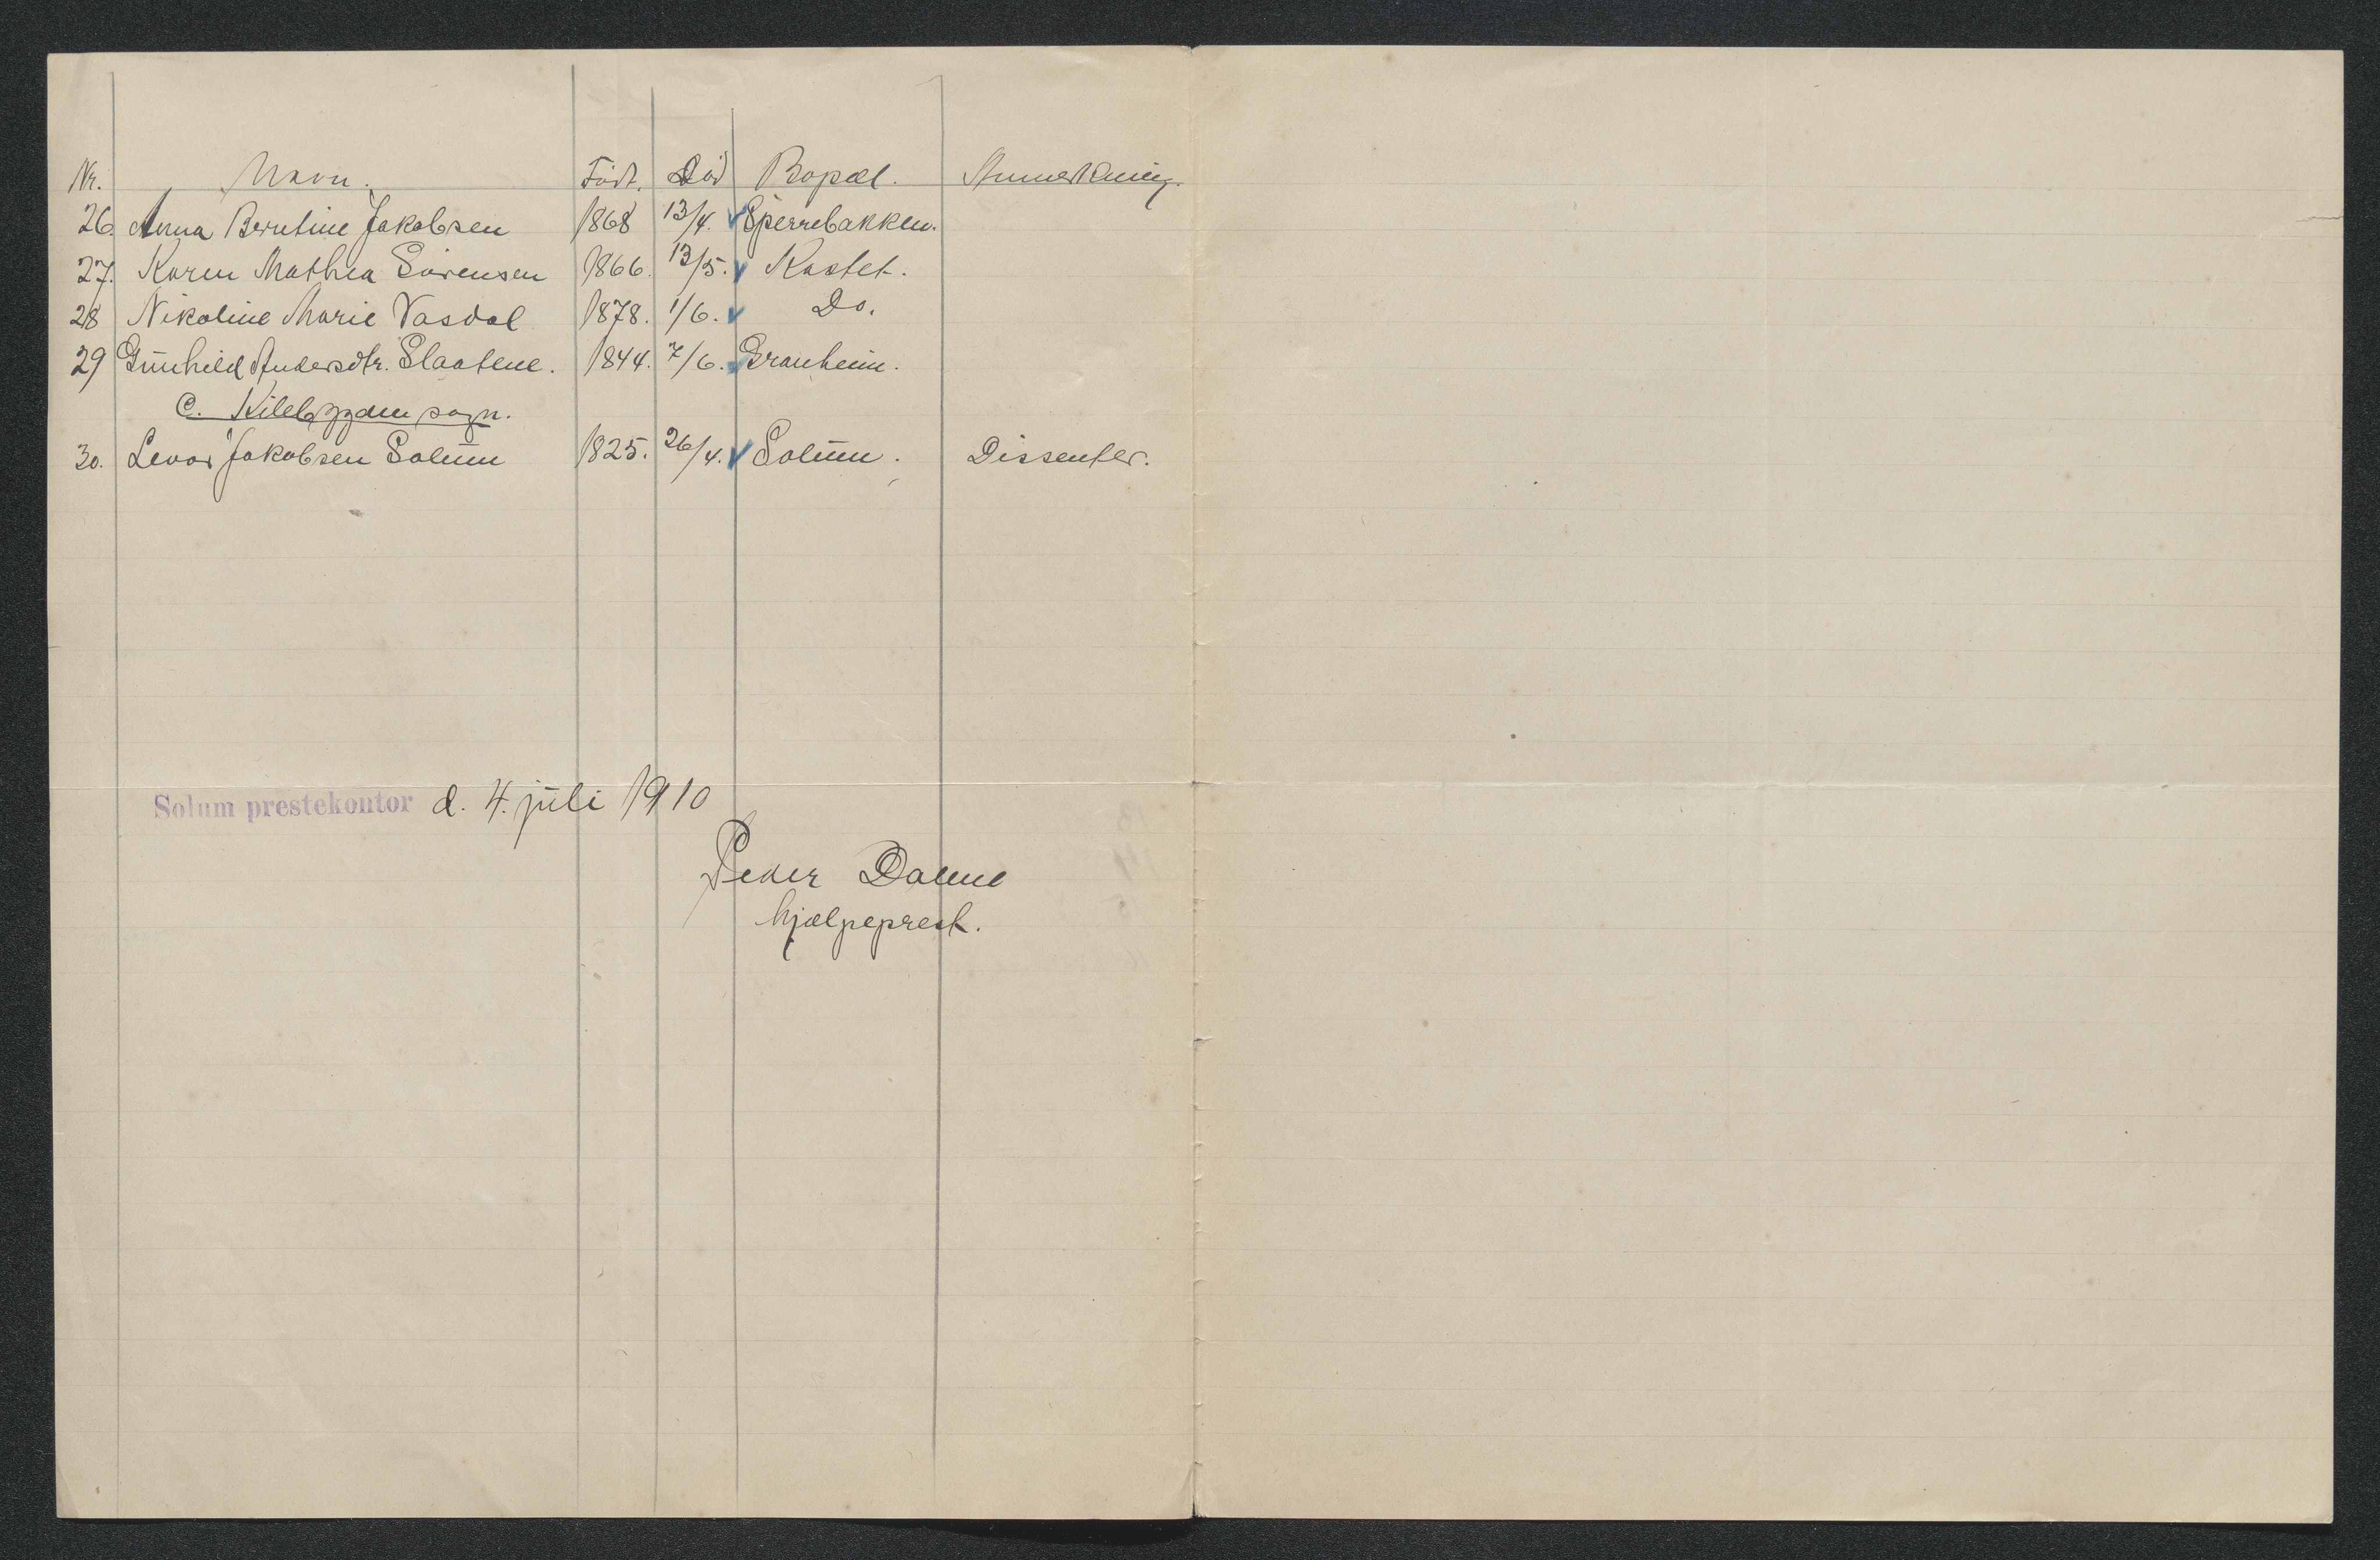 Nr. Navn. Født. Død Bopæl. Anmerkning.
26. Anna Berntine Jakobsen 1868 13/4. Sperrebakken.
27. Karen Mathea Sørensen 1866. 13/5. Kastet.
28 Nikoline Marie Vasdal 1878. 1/6. Do.
29 Gunhild Andersdtr. Slaatene. 1844. 7/6. Granheim.
C. Kilebygden sogn.
30. Levor Jakobsen Solum 1825. 26/4. Solum. Dissenter.
Solum prestekontor d. 4. juli 1910
Peder
hjælpeprest.